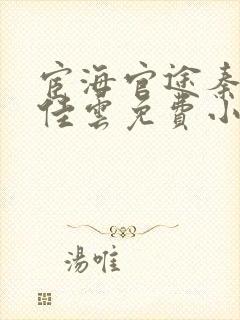 宦海官途秦
佳雲免費小
湯唯